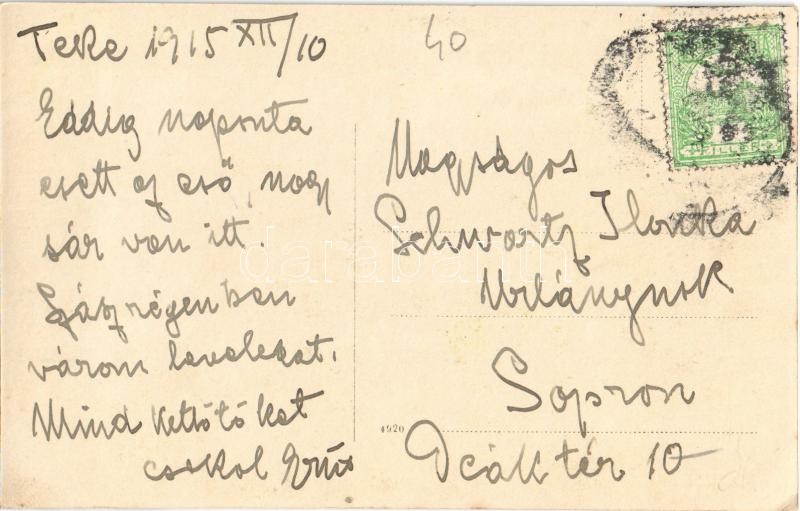 Teke 1915 XII/10
40
Eddig naponta
esett az eső, nagy
sár van itt.
Szászrégenben
várom leveleket.
Mind kettőtöket
csokol Ernő
Nagyságos
Schwartz Ilonka
Urlánynak
Sopron
Deák tér 10
4920
FILLÉR
darabanth